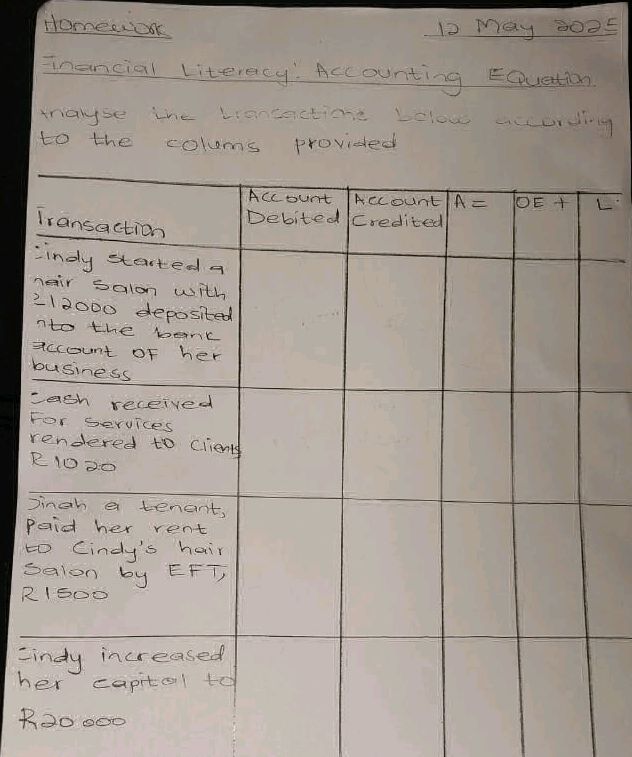 Homework 12 May 2025
Financial Literacy: Accounting Equation
Analyse the transactions below according
to the colums provided
Transaction
Account
Debited
Account
Credited
A =
OE +
L
Cindy started a
hair salon with
R12000 deposited
into the bank
account OF her
business
Cash received
For services
rendered to clients
R1020
Dinah a tenant,
paid her rent
to Cindy's hair
Salon by EFT,
R1500
Cindy increased
her capital to
R20 000